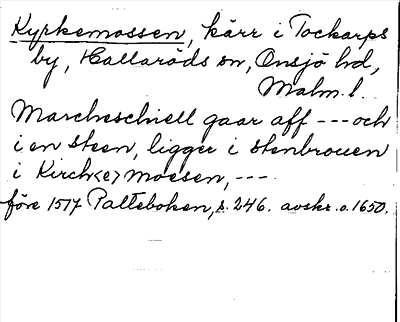 Kyrkemossen, kärr i Tockarps
by, Hallaröds sn, Onsjö hd,
Malm. l.
Marcheschiell gaar aff --- och
i en steen, ligger i stenbrouen
i Kirch<e> moesen, ---
före 1517 Palteboken, s. 246. avskr. o. 1650.